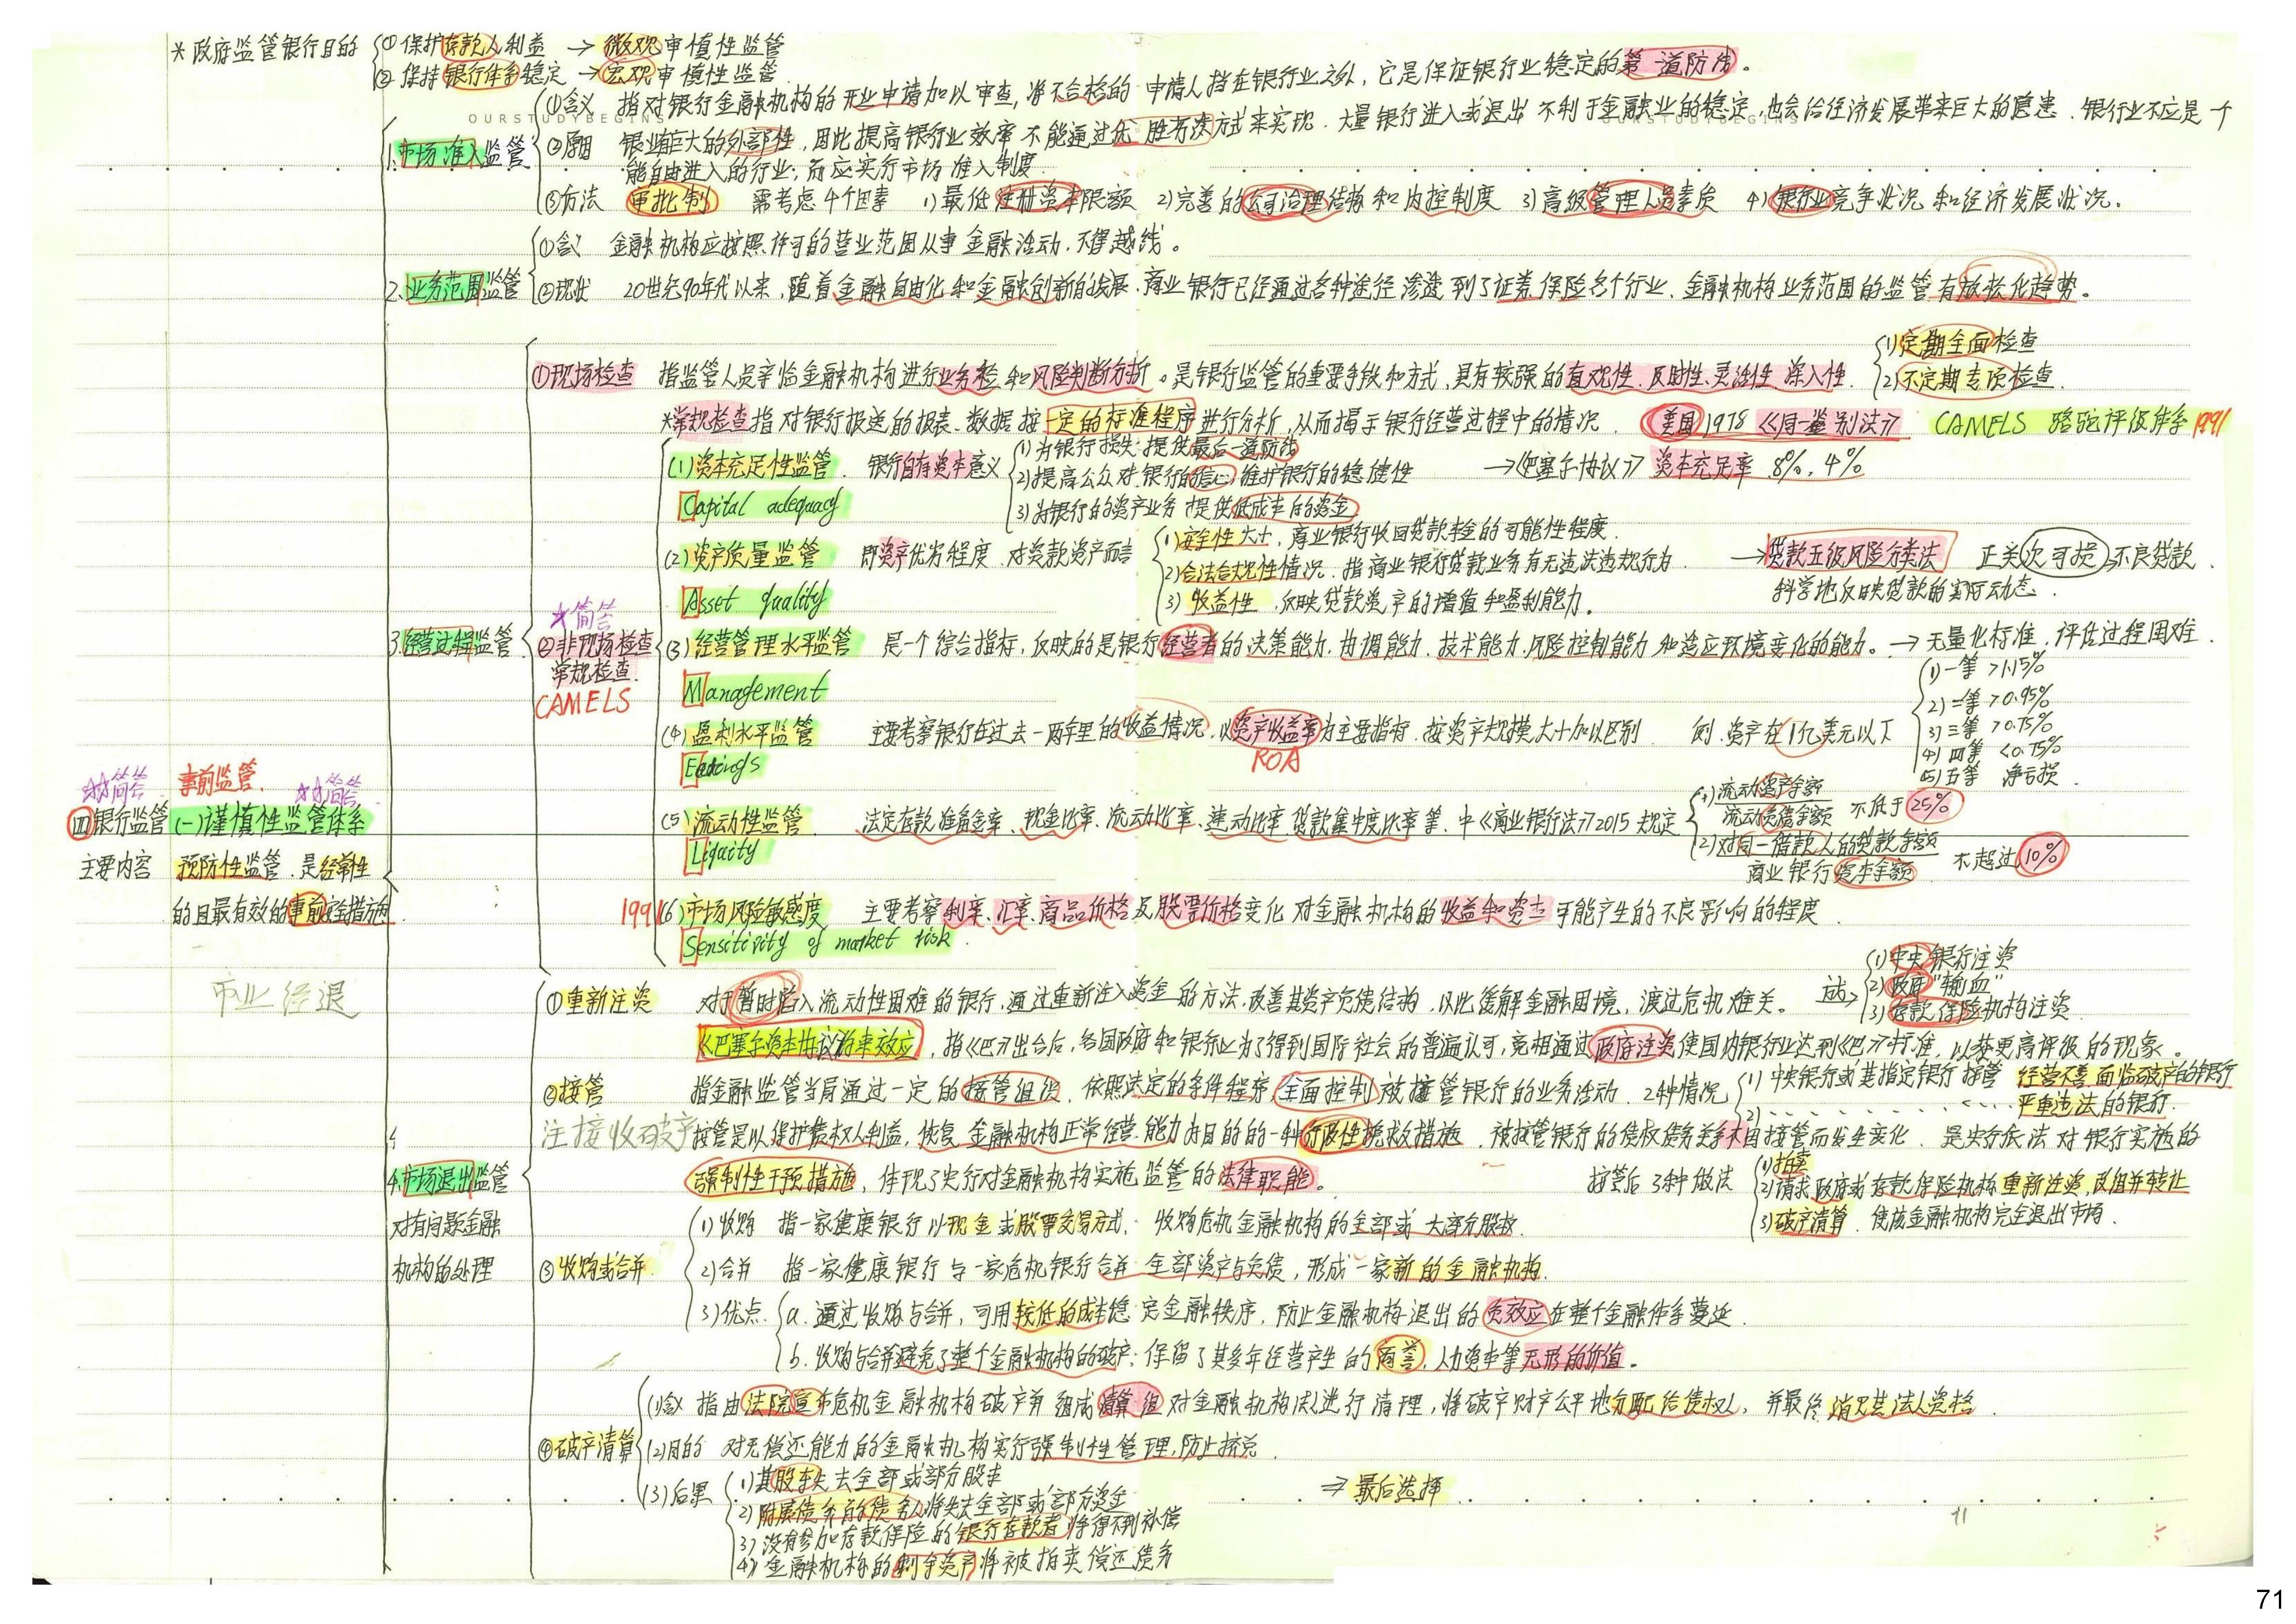 *政府监管银行目的
①保护存款人利益 → 微观审慎性监管
②保持银行体系稳定 → 宏观审慎性监管
OURSTUDYBEGINS
OURSTUDYBEGINS
1.市场准入监管
①含义 指对银行金融机构的开业申请加以审查,将不合格的申请人挡在银行业之外,它是保证银行业稳定的第一道防线。
②原因 银业有巨大的外部性,因此提高银行业效率不能通过优胜劣汰方式来实现.大量银行进入或退出不利于金融业的稳定,也会给经济发展带来巨大的隐患.银行业不应是一个
能自由进入的行业;而应实行市场准入制度.
③方法 审批制 需考虑4个因素 1)最低注册资本限额 2)完善的公司治理结构和内控制度 3)高级管理人员素质 4)银行业竞争状况和经济发展状况。
2.业务范围监管
①含义 金融机构应按照许可的营业范围从事金融活动.不得越线。
②现状 20世纪90年代以来,随着金融自由化和金融创新的发展.商业银行已经通过各种途径渗透到了证券保险各个行业.金融机构业务范围的监管有放松化趋势。
3.经营过程监管
①现场检查 指监管人员亲临金融机构进行业务检和风险判断分析。是银行监管的重要手段和方式,具有较强的直观性.及时性.灵活性 深入性.
(1)定期全面检查
(2)不定期专项检查.
☆简答
②非现场检查
常规检查.
CAMELS
*常规检查指对银行报送的报表.数据按一定的标准程序进行分析,从而揭示银行经营过程中的情况. 美国1978《同一鉴别法》 CAMELS 骆驼评级体系1991
(1)资本充足性监管. 银行自有资本意义
Capital adequacy
1)为银行损失提供最后一道防线
2)提高公众对银行的信心,维护银行的稳健性
3)为银行的资产业务提供低成本的资金
→《巴塞尔协议》资本充足率.8%.4%
(2)资产质量监管 即资产优劣程度.对贷款资产而言
Asset quality
1)安全性大小.商业银行收回贷款本金的可能性程度.
2)合法合规性情况.指商业银行贷款业务有无违法违规行为
3)收益性.反映贷款资产的增值和盈利能力。
→贷款五级风险分类法 正关次可损→不良贷款.
科学地反映贷款的实际动态.
(3)经营管理水平监管 是一个综合指标,反映的是银行经营者的决策能力.协调能力.技术能力.风险控制能力和适应环境变化的能力。→无量化标准,评估过程困难.
Management
(4)盈利水平监管 主要考察银行在过去一两年里的收益情况,以资产收益率为主要指标.按资产规模大小加以区别. 例.资产在1亿美元以下
ROA
1)一等 >1.15%
2)二等 >0.95%
3)三等 >0.75%
4)四等 <0.75%
5)五等 净亏损.
(5)流动性监管 法定存款准备金率、现金比率.流动比率.速动比率.贷款集中度比率等.中《商业银行法》2015规定
1)流动资产余额
流动负债余额 不低于25%
2)对同一借款人的贷款余额
商业银行资本余额 不超过10%
1991(6)市场风险敏感度 主要考察利率.汇率.商品价格及股票价格变化对金融机构的收益和资本可能产生的不良影响的程度.
Sensitivity of market risk.
☆☆简答 事前监管. ☆☆简答
四银行监管主要内容
(一)谨慎性监管体系
预防性监管.是经常性
市业经退
4.市场退出监管
对有问题金融
机构的处理
①重新注资 对于暂时陷入流动性困难的银行,通过重新注入资金的方法,改善其资产负债结构,以此缓解金融困境,渡过危机难关。
(1)中央银行注资
(2)政府"输血"
(3)存款保险机构注资.
《巴塞尔资本协议》约束效应,指《巴》出台后,各国政府和银行业为了得到国际社会的普遍认可,竞相通过政府注资使国内银行业达到《巴》标准,以获更高评级的现象。
②接管 指金融监管当局通过一定的接管组织.依照法定的条件程序,全面控制被接管银行的业务活动.2种情况
1)中央银行或其指定银行接管 经营不善面临破产的银行
2) 严重违法的银行.
注接收破
接管是以保护债权人利益,恢复金融机构正常经营能力为目的的一种行政性挽救措施.被接管银行的债权债务关系不因接管而发生变化.是央行依法对银行实施的
强制性干预措施,体现了央行对金融机构实施监管的法律职能。
接管后3种做法
(1)拍卖
(2)请求政府或存款保险机构重新注资,改组并转让
(3)破产清算.使该金融机构完全退出市场.
③收购或合并
1)收购 指一家健康银行以现金或股票交易方式.收购危机金融机构的全部或大部分股权.
2)合并 指一家健康银行与一家危机银行合并全部资产与负债,形成一家新的金融机构.
3)优点. a.通过收购与合并,可用较低的成本稳定金融秩序,防止金融机构退出的负效应在整个金融体系蔓延.
b.收购与合并避免了整个金融机构的破产;保留了其多年经营产生的商誉,人力资本等无形的价值。
④破产清算
(1)含义 指由法院宣布危机金融机构破产并组成清算组对金融机构依法进行清理,将破产财产公平地分配给债权人,并最终消灭其法人资格.
(2)目的 对无偿还能力的金融机构实行强制性管理,防止挤兑.
(3)后果 1)其股东失去全部或部分股本
2)附属债务的债务人将失去全部或部分资金
3)没有参加存款保险的银行存款者将得不到补偿
4)金融机构的剩余资产将被拍卖偿还债务
⇒最后选择
71
71